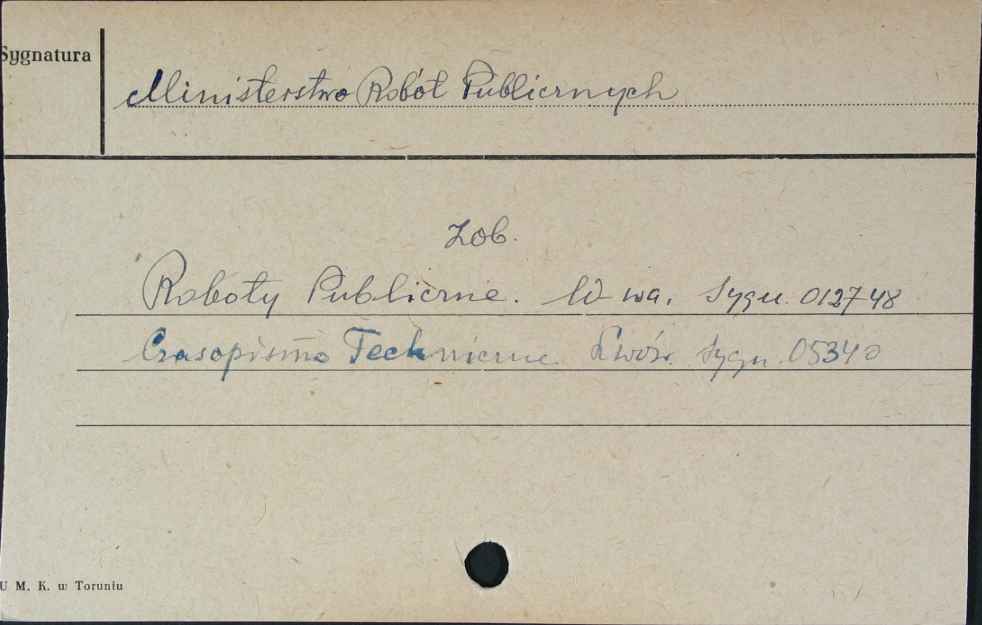 Sygnatura
Ministerstwo Robót Publicznych
Zob.
Roboty Publiczne. W-wa. Sygn. 012748
Czasopismo Techniczne Lwów. Sygn. 05340
U M. K. w Toruniu